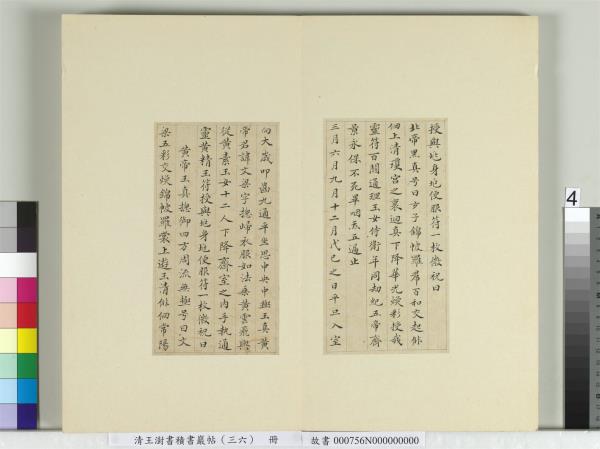 授與兆身兆便服符一枚微祝曰
北帝黑真号曰玄子錦帔羅帬百和交起俳
佪上清瓊宮之裏迴真下降華光煥彩授我
靈符百關通理玉女侍衛年同劫紀五帝齊
景永保不死畢咽炁五過止
三月六月九月十二月戊己之日平旦入室
向太歲叩齒九通平坐思中央中極玉真黄
帝君諱文梁字揔歸衣服如法乗黄雲飛輿
從黄素玉女十二人下降齋室之内手執通
靈黄精玉符授與兆身兆便服符一枚微祝曰
黄帝玉真揔御四方周流無極号曰文
梁五彩交煥錦帔羅裳上遊玉清俳佪常陽
清王澍書積書巖帖（三六） 冊
故書 000756N000000000
4